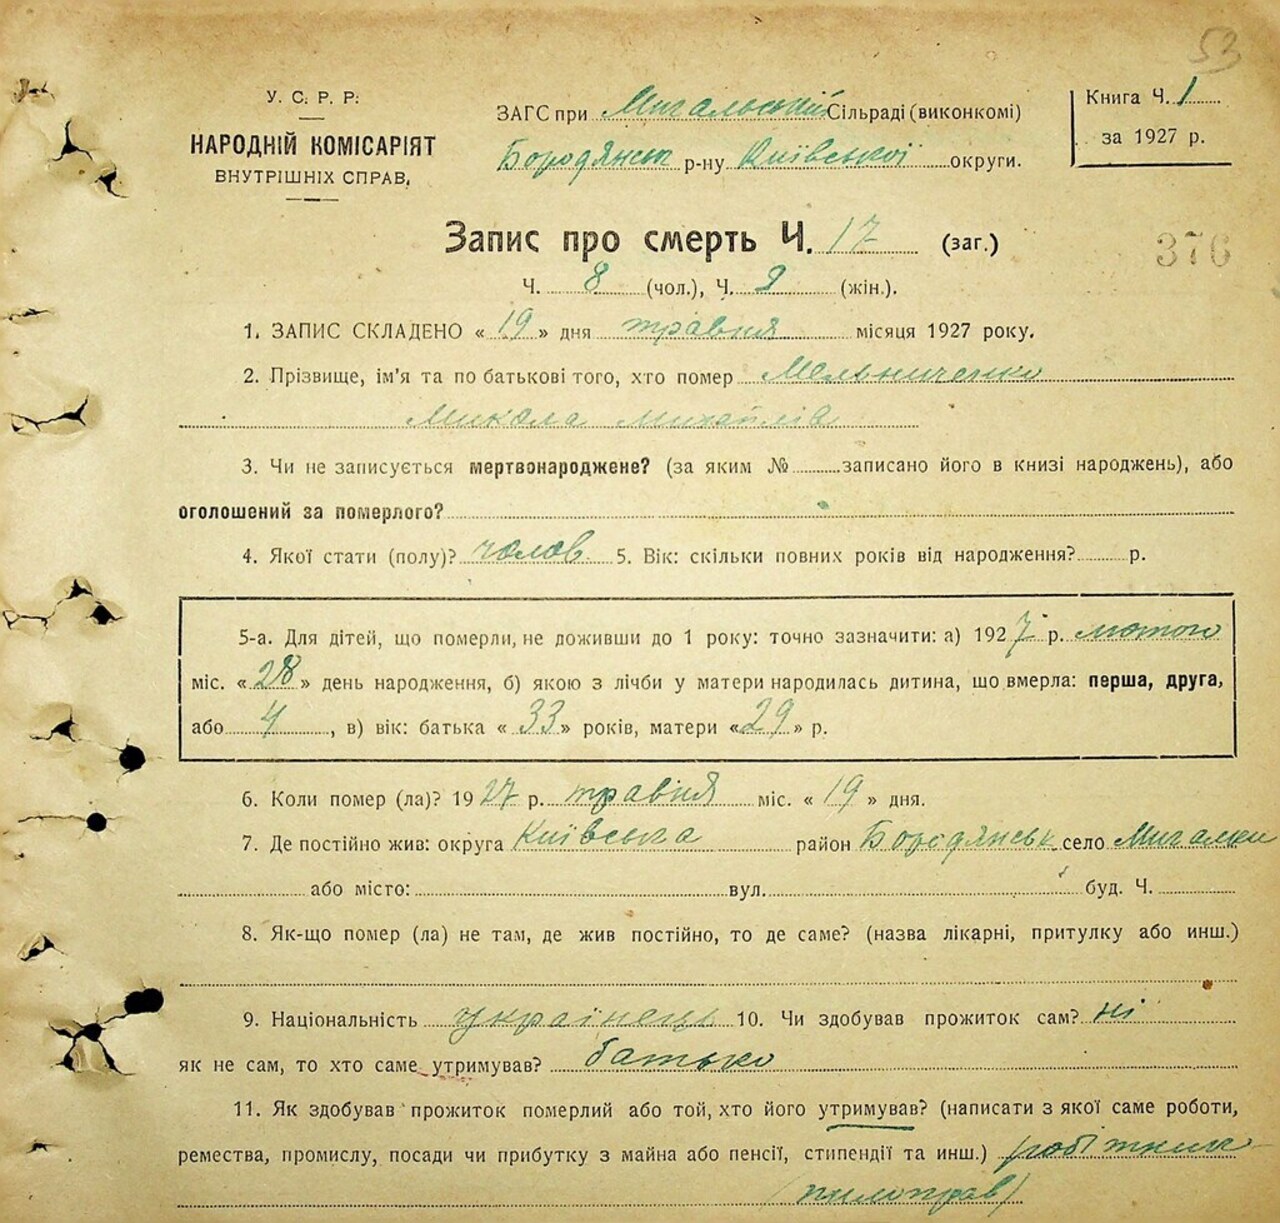 53
У. С. Р. Р.
НАРОДНІЙ КОМІСАРІЯТ
ВНУТРІШНІХ СПРАВ.
ЗАГС при Мигальській Сільраді (виконкомі)
Бородянськ р-ну Київської округи.
Книга Ч. 1
за 1927 р.
Запис про смерть Ч. 17 (заг.)
376
Ч. 8 (чол.), Ч. 9 (жін.).
1. ЗАПИС СКЛАДЕНО « 19 » дня травня місяця 1927 року.
2. Прізвище, ім'я та по батькові того, хто помер Мельниченко
Микола Михайлів
3. Чи не записується мертвонароджене? (за яким № записано його в книзі народжень), або
оголошений за померлого?
4. Якої стати (полу)? чолов 5. Вік: скільки повних років від народження? р.
5-а. Для дітей, що померли, не доживши до 1 року: точно зазначити: а) 1927 р. лютого
міс. « 28 » день народження, б) якою з лічби у матери народилась дитина, що вмерла: перша, друга,
або 4, в) вік: батька « 33 » років, матери « 29 » р.
6. Коли помер (ла)? 1927 р. травня міс. « 19 » дня.
7. Де постійно жив: округа Київська район Бородянськ село Мигалки
або місто: вул. буд. Ч.
8. Як-що помер (ла) не там, де жив постійно, то де саме? (назва лікарні, притулку або инш.)
9. Національність українець 10. Чи здобував прожиток сам? ні
як не сам, то хто саме утримував? батько
11. Як здобував прожиток померлий або той, хто його утримував? (написати з якої саме роботи,
ремества, промислу, посади чи прибутку з майна або пенсії, стипендії та инш.) робітник
(пилоправ)